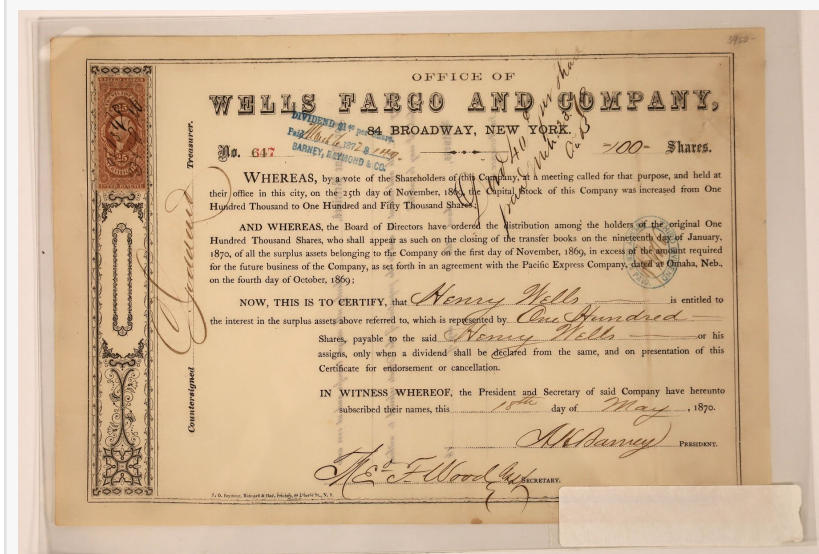 3950-
OFFICE OF
WELLS FARGO AND COMPANY,
84 BROADWAY, NEW YORK.
No. 647
-100- Shares.
DIVIDEND $1 40 per share.
Paid March 1872
BARNEY, RAYMOND & CO.
25
25
Treasurer.
Countersigned
WHEREAS, by a vote of the Shareholders of this Company, at a meeting called for that purpose, and held at
their office in this city, on the 25th day of November, 1869, the Capital Stock of this Company was increased from One
Hundred Thousand to One Hundred and Fifty Thousand Shares;
AND WHEREAS, the Board of Directors have ordered the distribution among the holders of the original One
Hundred Thousand Shares, who shall appear as such on the closing of the transfer books on the nineteenth day of January,
1870, of all the surplus assets belonging to the Company on the first day of November, 1869, in excess of the amount required
for the future business of the Company, as set forth in an agreement with the Pacific Express Company, dated at Omaha, Neb.,
on the fourth day of October, 1869;
NOW, THIS IS TO CERTIFY, that Henry Wells is entitled to
the interest in the surplus assets above referred to, which is represented by One Hundred
Shares, payable to the said Henry Wells or his
assigns, only when a dividend shall be declared from the same, and on presentation of this
Certificate for endorsement or cancellation.
IN WITNESS WHEREOF, the President and Secretary of said Company have hereunto
subscribed their names, this 18th day of May, 1870.
A H Barney PRESIDENT.
Geo. F. Wood SECRETARY.